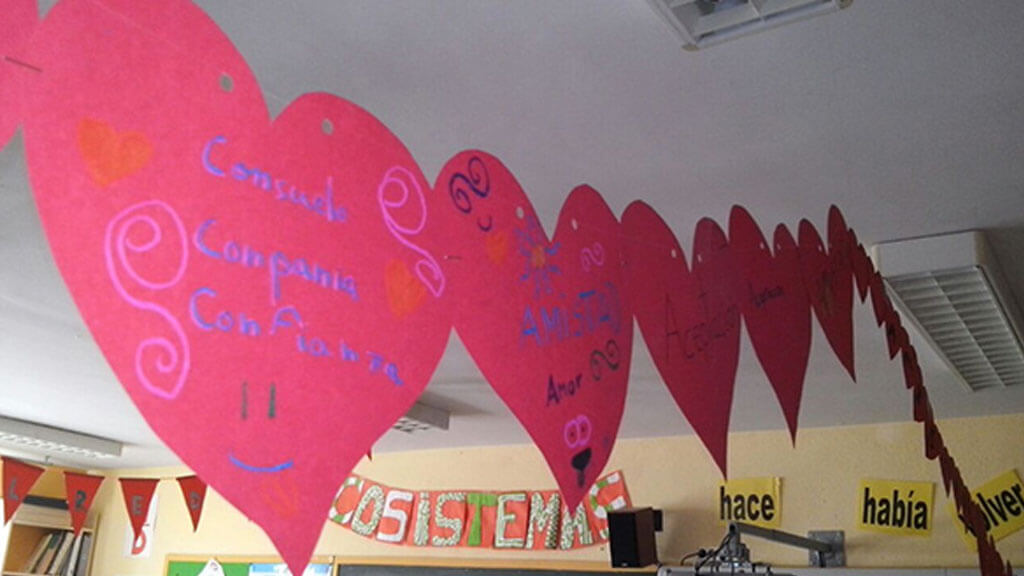 Consuelo
Compania
Confianza
AMISTAD
Amor
COSISTEMAS
hace
había
olver